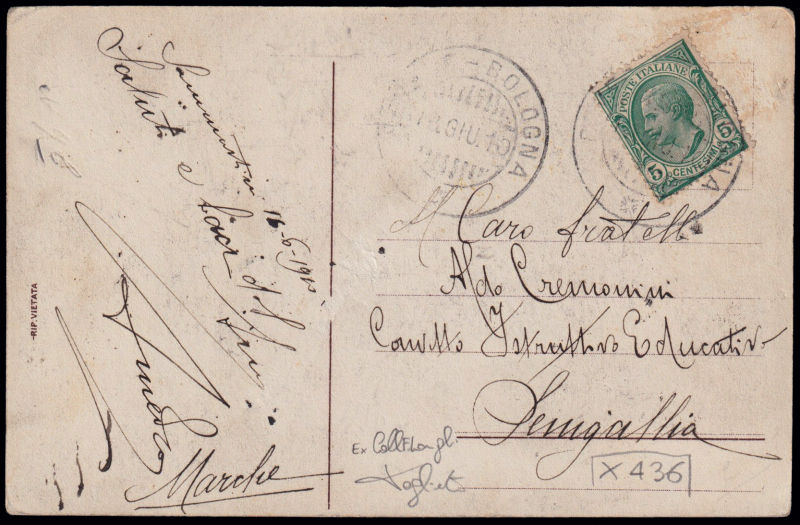 Sammartini 16-6-1910
Saluti e baci dal tuo
Amedeo
RIP. VIETATA
BOLOGNA
GIU. 10
POSTE ITALIANE
5 CENTESIMI 5
Al Caro fratello
Aldo Cremonini
Convitto Istruttivo Educativo
Senigallia
Marche
Ex Coll
Toglieto
X 436